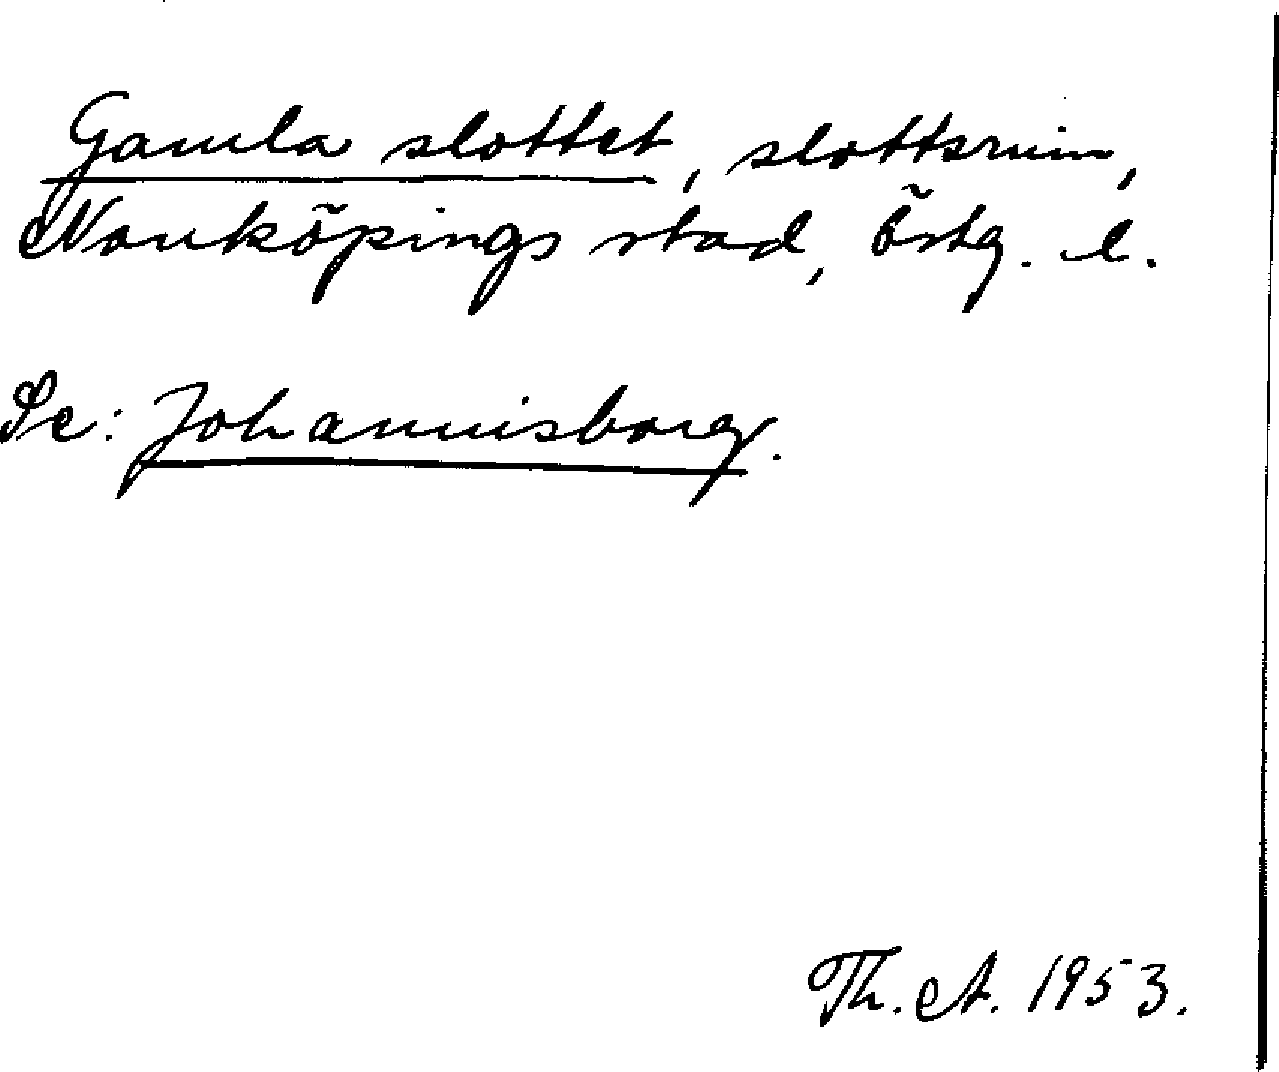 Gamla slottet, slottsruin,
Norrköpings stad, Östg. l.
Se: Johannisborg.
Th. A. 1953.